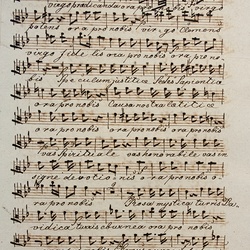 virgo prædicanda ora pro nobis virgo
potens ora pro nobis virgo Clemens
virgo fidelis ora pro nobis ora pro no
bis Speculum justitiæ Sedes Sapientia
ora pro nobis Causa nostra Latitiæ
ora pro nobis ora pro nobis ora pro nobis
vas Spirituale vas honorabile vas in
signe devotionis ora pro nobis o
ra pro nobis Rosa mystica turris Da
vidica turris eburnea ora pro nobis